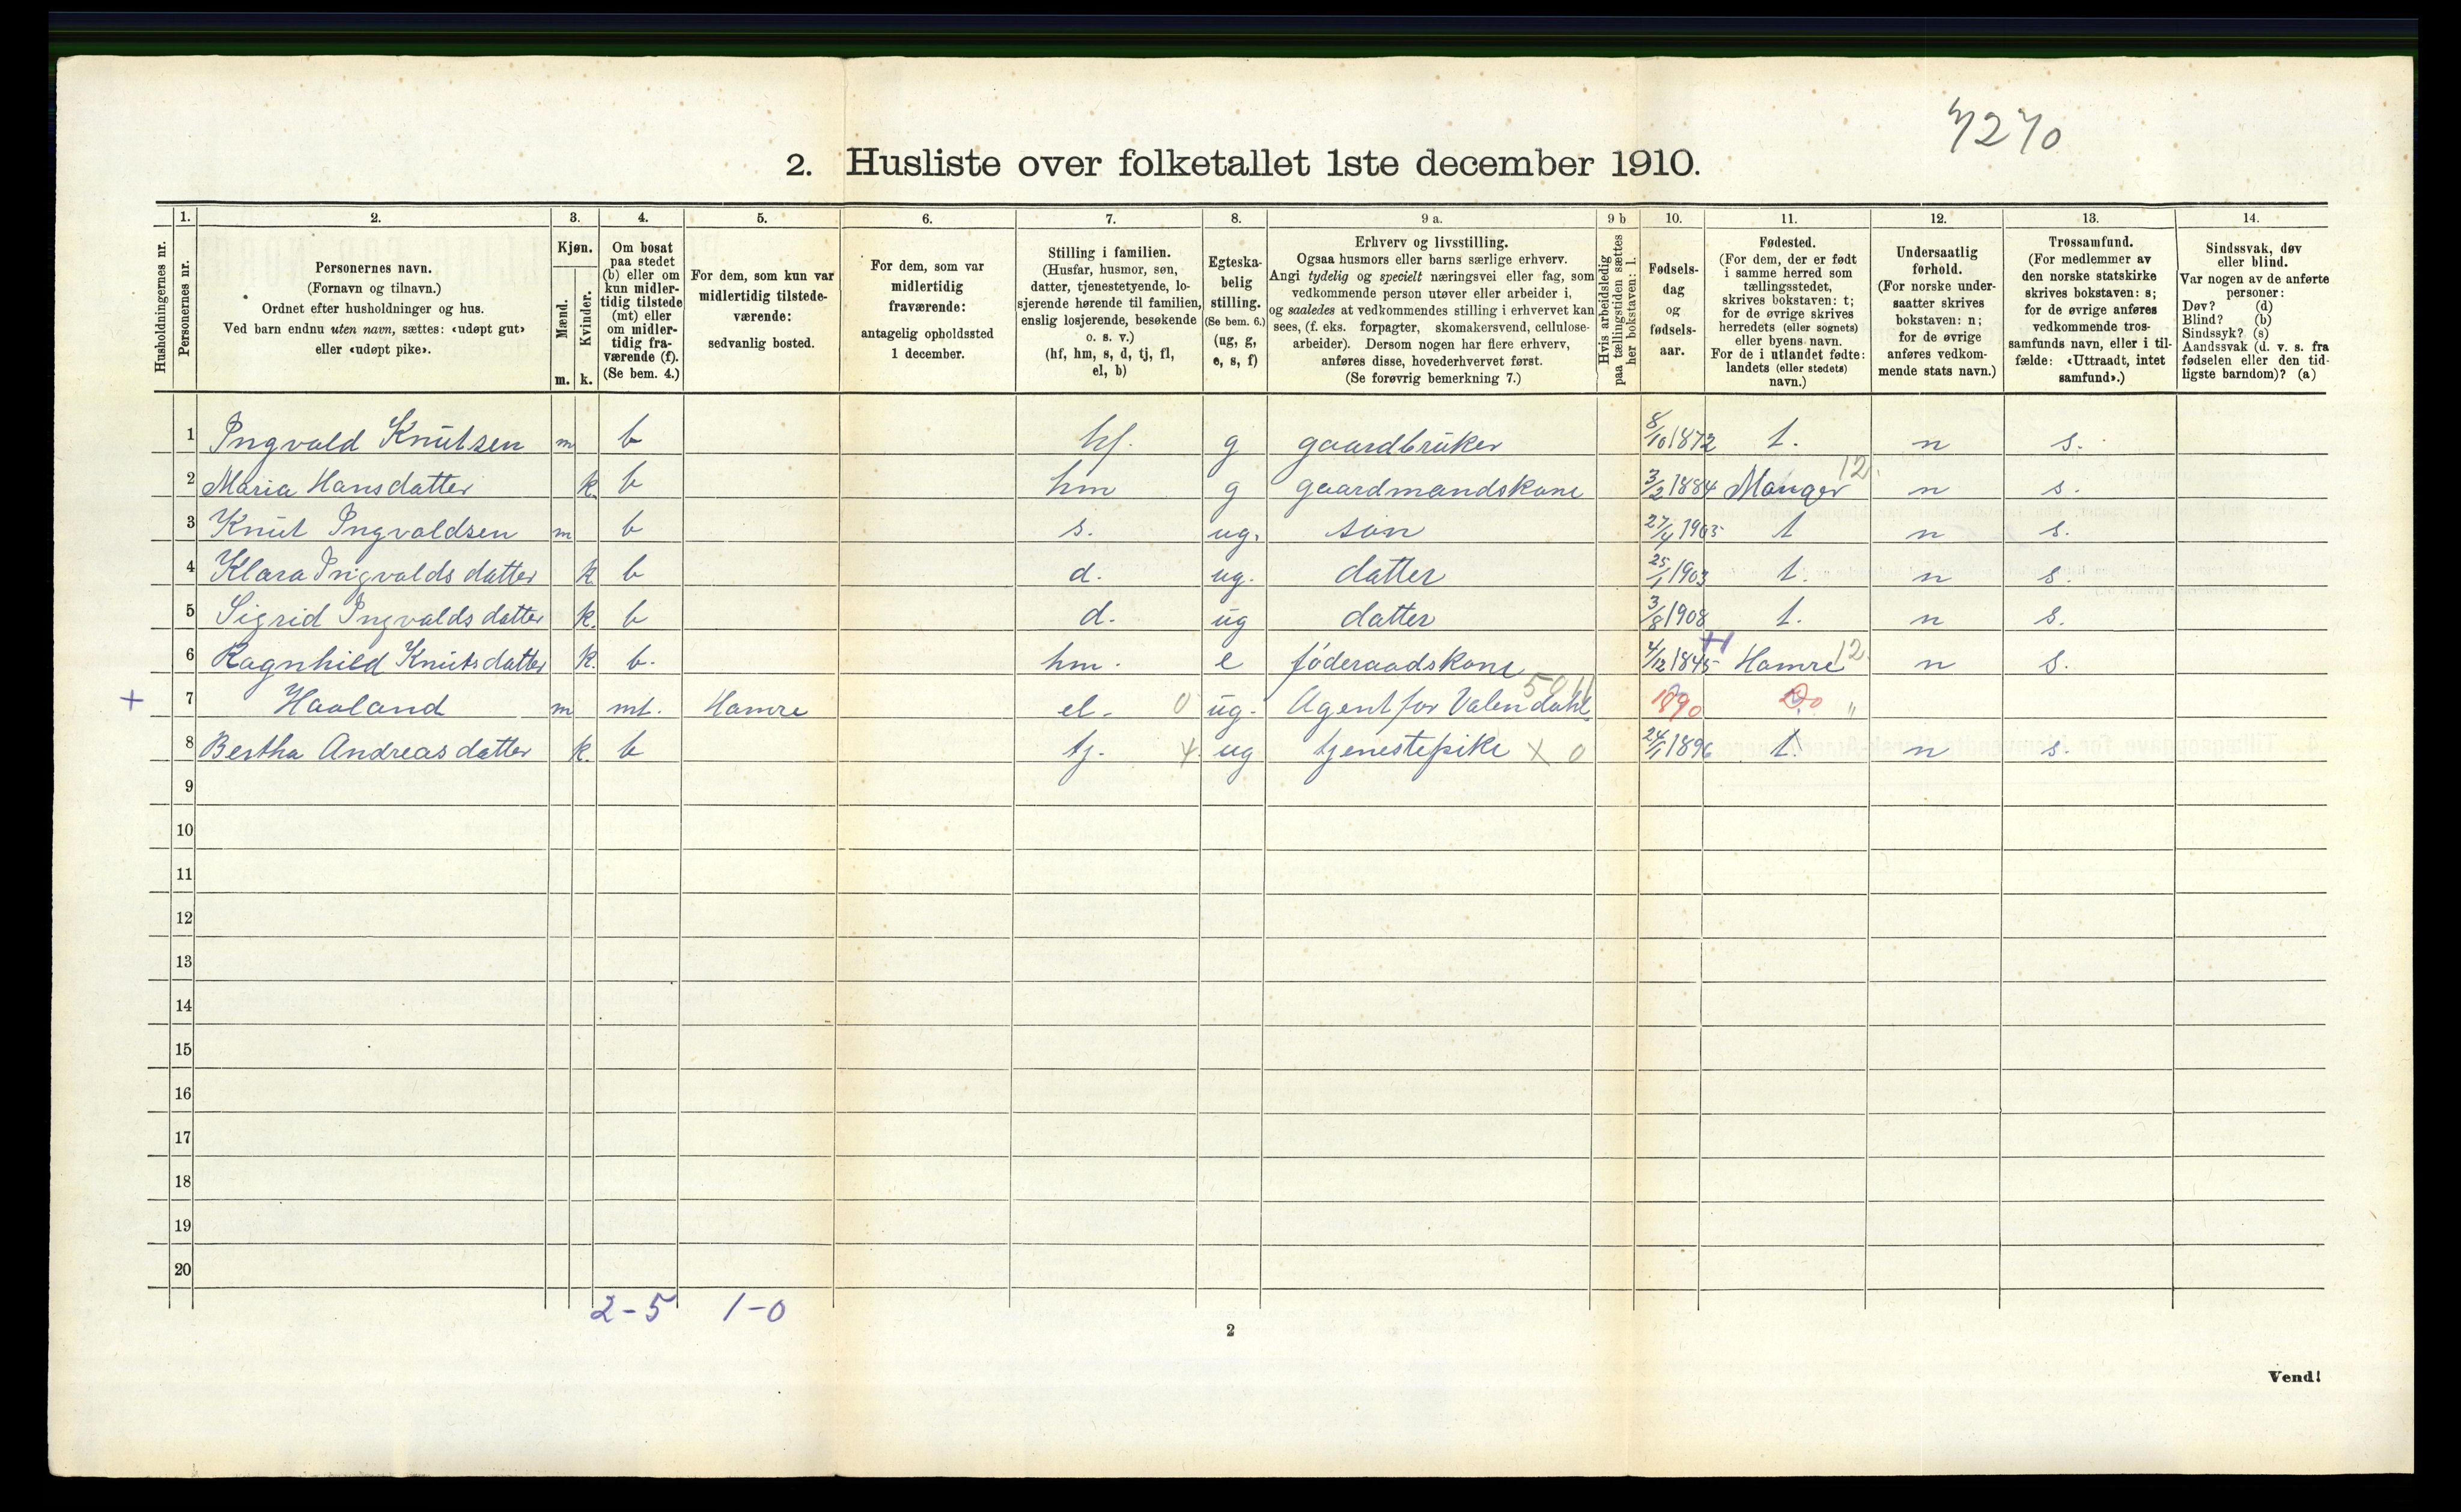 7270
2. Husliste over folketallet 1ste december 1910.
Husholdningernes nr.
1. Personernes nr.
2. Personernes navn. (Fornavn og tilnavn.) Ordnet efter husholdninger og hus. Ved barn endnu uten navn, sættes: «udøpt gut» eller «udøpt pike».
3. Kjøn. Mænd. m. Kvinder. k.
4. Om bosat paa stedet (b) eller om kun midler-tidig tilstede (mt) eller om midler-tidig fra-værende (f). (Se bem. 4.)
5. For dem, som kun var midlertidig tilstede-værende: sedvanlig bosted.
6. For dem, som var midlertidig fraværende: antagelig opholdssted 1 december.
7. Stilling i familien. (Husfar, husmor, søn, datter, tjenestetyende, lo-sjerende hørende til familien, enslig losjerende, besøkende o. s. v.) (hf, hm, s, d, tj, fl, el, b)
8. Egteska-belig stilling. (Se bem. 6.) (ug, g, e, s, f)
9 a. Erhverv og livsstilling. Ogsaa husmors eller barns særlige erhverv. Angi tydelig og specielt næringsvei eller fag, som vedkommende person utøver eller arbeider i, og saaledes at vedkommendes stilling i erhvervet kan sees, (f. eks. forpagter, skomakersvend, cellulose-arbeider). Dersom nogen har flere erhverv, anføres disse, hovederhvervet først. (Se forøvrig bemerkning 7.)
9 b Hvis arbeidsledig paa tællingstiden sættes her bokstaven: l.
10. Fødsels-dag og fødsels-aar.
11. Fødested. (For dem, der er født i samme herred som tællingsstedet, skrives bokstaven: t; for de øvrige skrives herredets (eller sognets) eller byens navn. For de i utlandet fødte: landets (eller stedets) navn.)
12. Undersaatlig forhold. (For norske under-saatter skrives bokstaven: n; for de øvrige anføres vedkom-mende stats navn.)
13. Trossamfund. (For medlemmer av den norske statskirke skrives bokstaven: s; for de øvrige anføres vedkommende tros-samfunds navn, eller i til-fælde: «Uttraadt, intet samfund».)
14. Sindssvak, døv eller blind. Var nogen av de anførte personer: Døv? (d) Blind? (b) Sindssyk? (s) Aandssvak (d. v. s. fra fødselen eller den tid-ligste barndom)? (a)
1 Ingvald Knutsen m b hf. g gaardbruker 8/10 1872 t. n s.
2 Maria Hansdatter k. b hm g gaardmandskone 3/2 1884 Manger 12. n s.
3 Knut Ingvaldsen m b s. ug. søn 27/4 1905 t n s.
4 Klara Ingvaldsdatter k b d. ug. datter 25/1 1903 t. n s.
5 Sigrid Ingvaldsdatter k. b d. ug datter 3/8 1908 t. n s.
6 Ragnhild Knutsdatter k. b. hm. e føderaadskone 4/12 1845 H Hamre 12. n s.
+ 7 Haaland m mt. Hamre el. 0 ug. Agent for Valendahl. 1890 "
8 Bertha Andreasdatter k. b tj. ug tjenestepike x 0 24/1 1896 t. n s.
9
10
11
12
13
14
15
16
17
18
19
20
2-5 1-0
2
Vend!